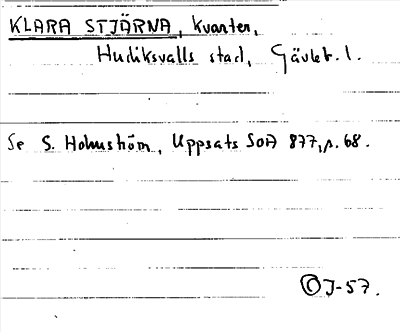 KLARA STJÄRNA, kvarter,
Hudiksvalls stad, Gävleb. l.
Se S. Holmström, Uppsats SOA 877, s. 68.
OJ-57.